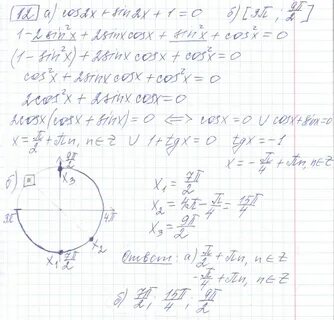 12. а) cos2x + sin2x + 1 = 0 б) [3π; 9π/2]
1 - 2sin²x + 2sinxcosx + sin²x + cos²x = 0
(1 - sin²x) + 2sinxcosx + cos²x = 0
cos²x + 2sinxcosx + cos²x = 0
2cos²x + 2sinxcosx = 0
2cosx(cosx + sinx) = 0 ⟺ cosx = 0 ∪ cosx + sinx = 0
x = π/2 + πn, n∈Z ∪ 1 + tgx = 0 tgx = -1
x = -π/4 + πn, n∈Z
б) 9π/2
x₃
3π
4π
x₂
x₁ 7π/2
x₁ = 7π/2
x₂ = 4π - π/4 = 15π/4
x₃ = 9π/2
Ответ: а) π/2 + πn, n∈Z
-π/4 + πn, n∈Z
б) 7π/2; 15π/4; 9π/2